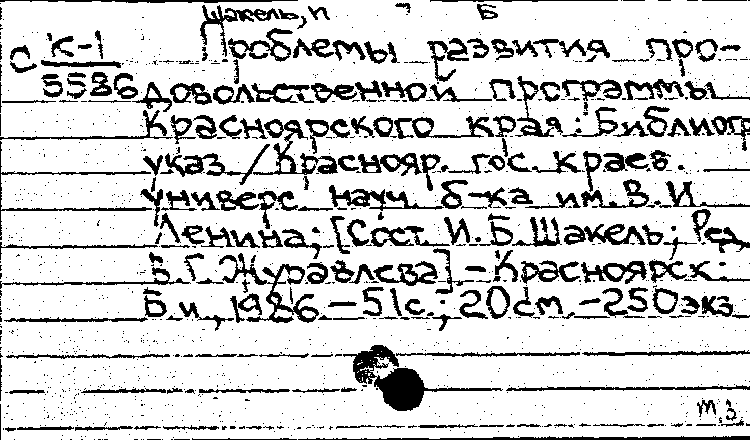 Шакель, И Б
С К-1 Проблемы развития про-
5586 довольственной программы
Красноярского края: Библиогр
указ / Краснояр. гос. краев.
универс. науч. б-ка им. В. И.
Ленина; [Сост. И. Б. Шакель; Ред.
Б. Г. Журавлева] - Красноярск:
Б. и, 1986. - 51 с.; 20 см. - 250 экз
т.з.